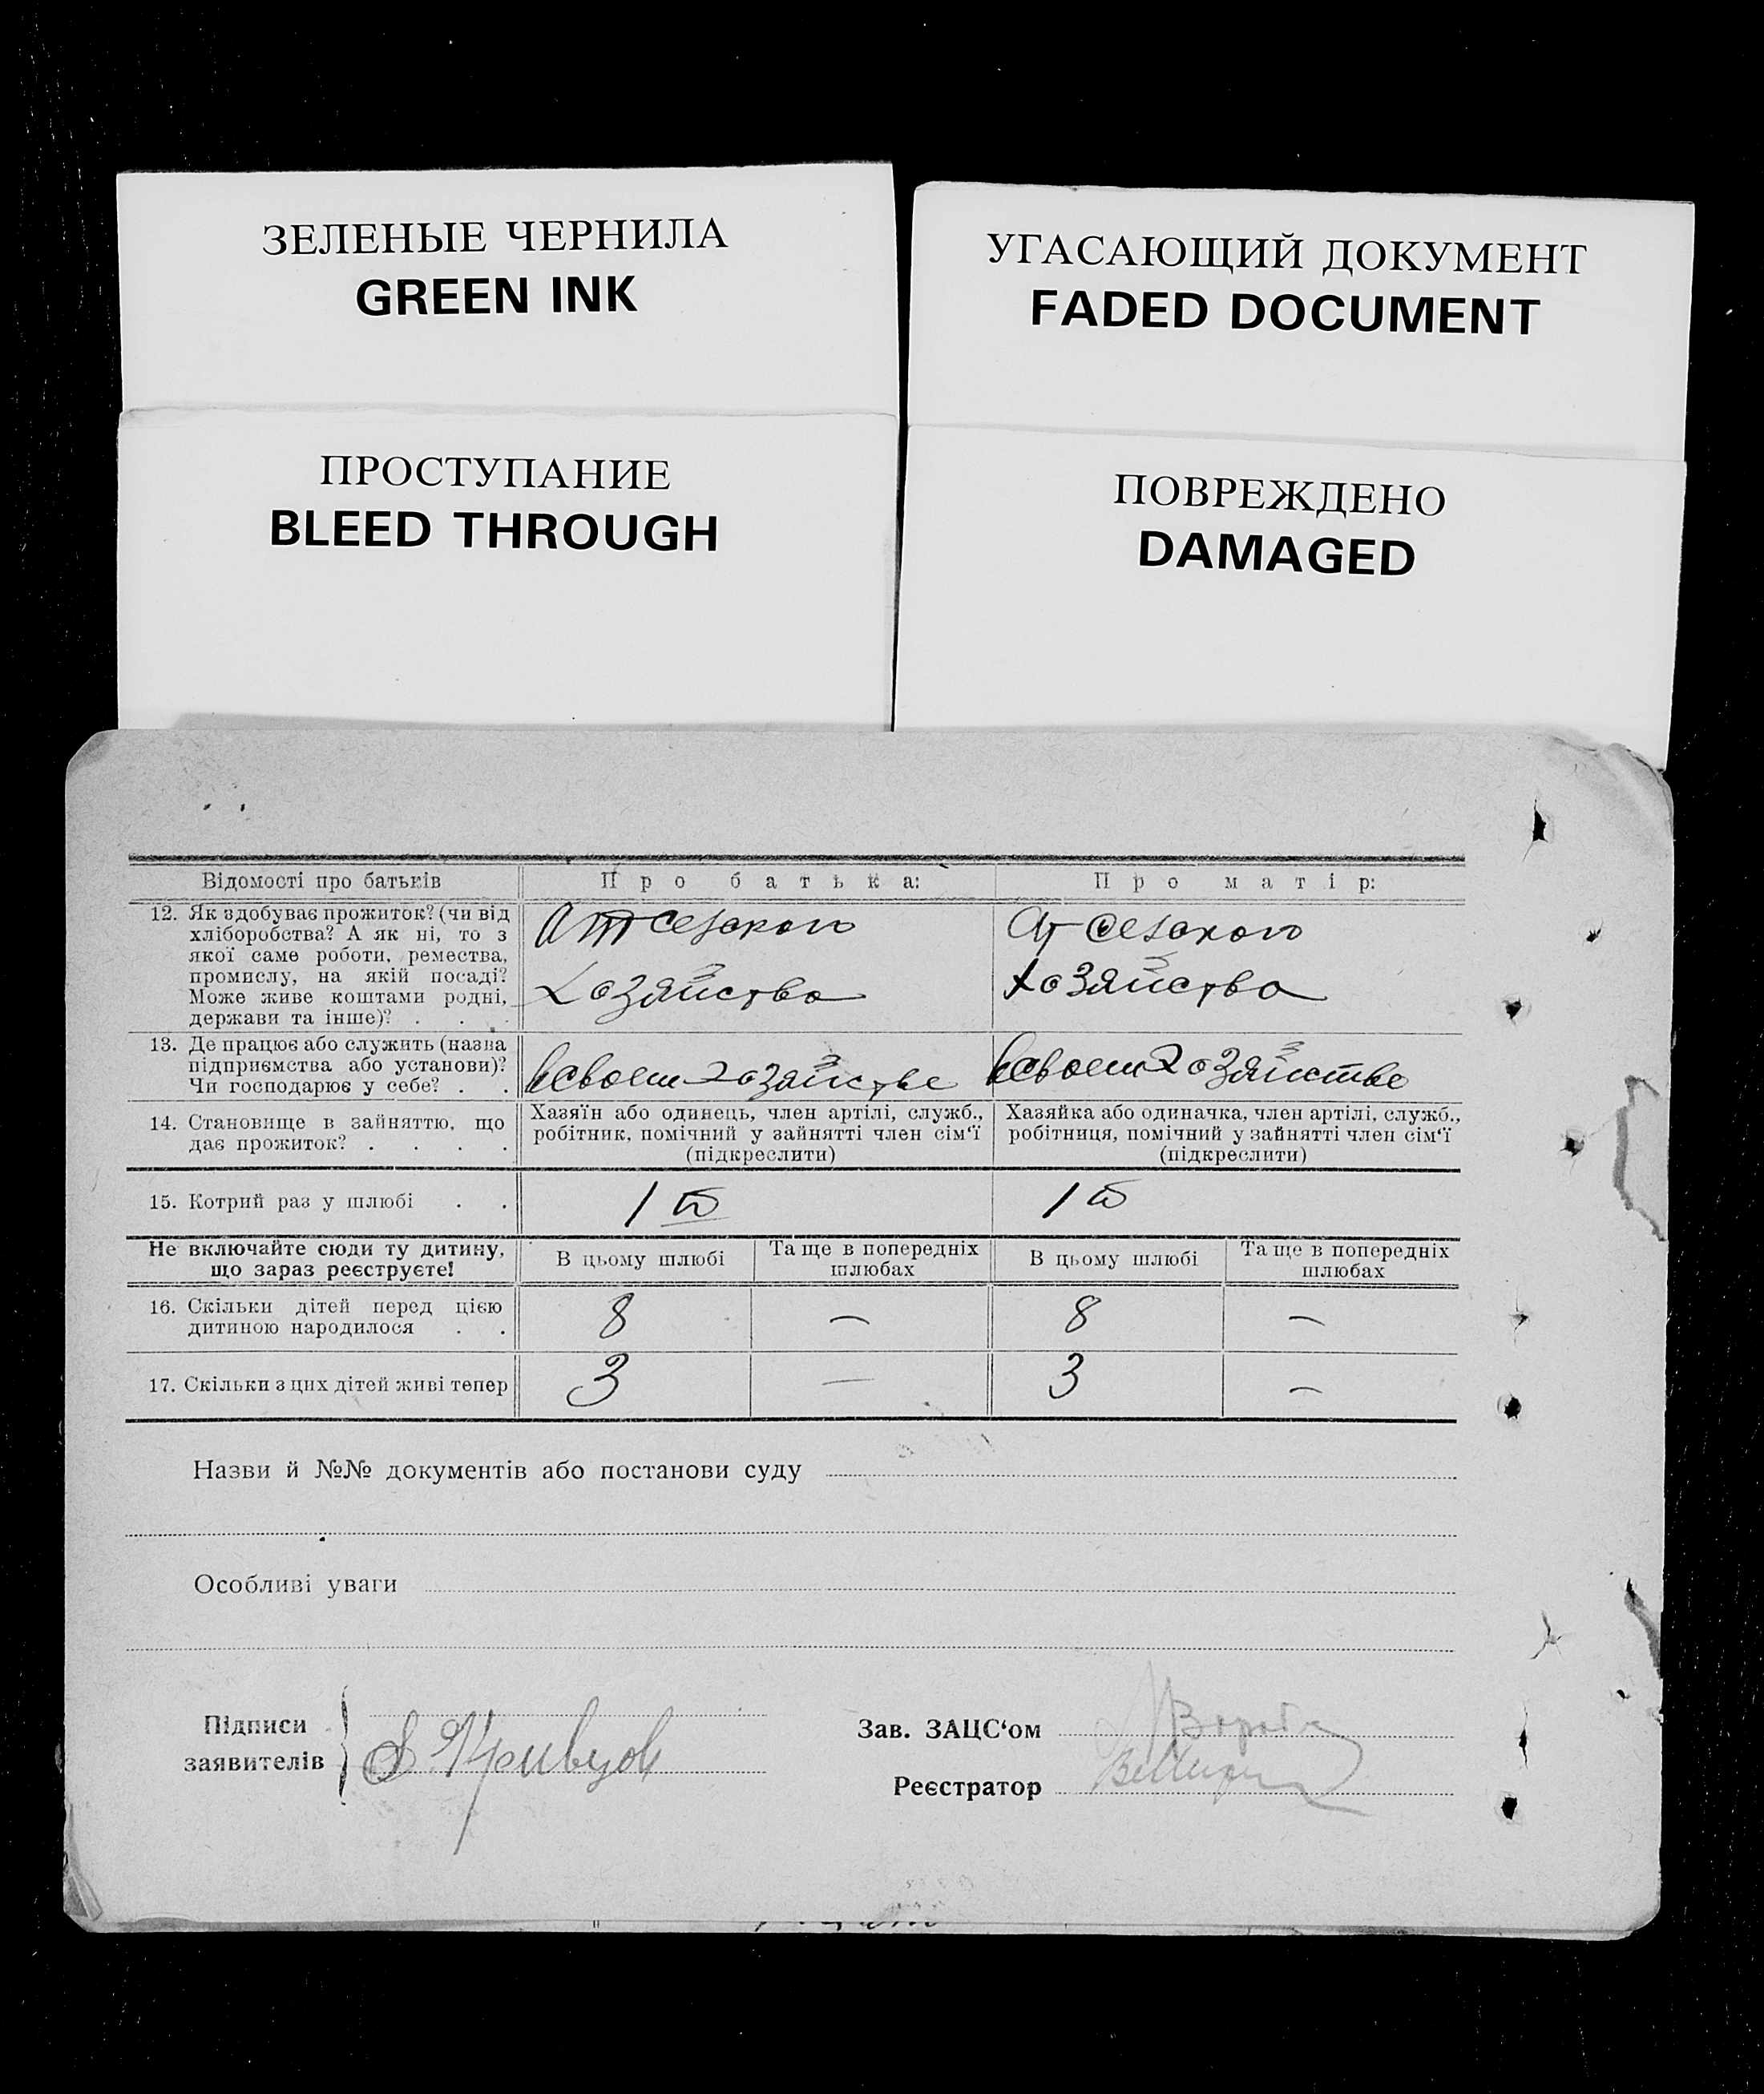 ЗЕЛЕНЫЕ ЧЕРНИЛА
GREEN INK
УГАСАЮЩИЙ ДОКУМЕНТ
FADED DOCUMENT
ПРОСТУПАНИЕ
BLEED THROUGH
ПОВРЕЖДЕНО
DAMAGED
Відомості про батьків
Про батька:
Про матір:
12. Як здобуває прожиток? (чи від
хліборобства? А як ні, то з
якої саме роботи, ремества,
промислу, на якій посаді?
Може живе коштами родні,
держави та інше)? . . .
От сельского
хозяйства
От сельского
хозяйства
13. Де працює або служить (назва
підприємства або установи)?
Чи господарює у себе? . .
в своем хозяйстве
в своем хозяйстве
14. Становище в зайняттю, що
дає прожиток? . . . .
Хазяїн або одинець, член артілі, служб.,
робітник, помічний у зайнятті член сім‘ї
(підкреслити)
Хазяйка або одиначка, член артілі, служб.,
робітниця, помічний у зайнятті член сім‘ї
(підкреслити)
15. Котрий раз у шлюбі . .
1й
1й
Не включайте сюди ту дитину,
що зараз реєструєте!
В цьому шлюбі
Та ще в попередніх
шлюбах
В цьому шлюбі
Та ще в попередніх
шлюбах
16. Скільки дітей перед цією
дитиною народилося . .
8 — 8 —
17. Скільки з цих дітей живі тепер
3 — 3 —
Назви й №№ документів або постанови суду
Особливі уваги
Підписи
заявителів
Кривцов
Зав. ЗАЦС‘ом
Реєстратор